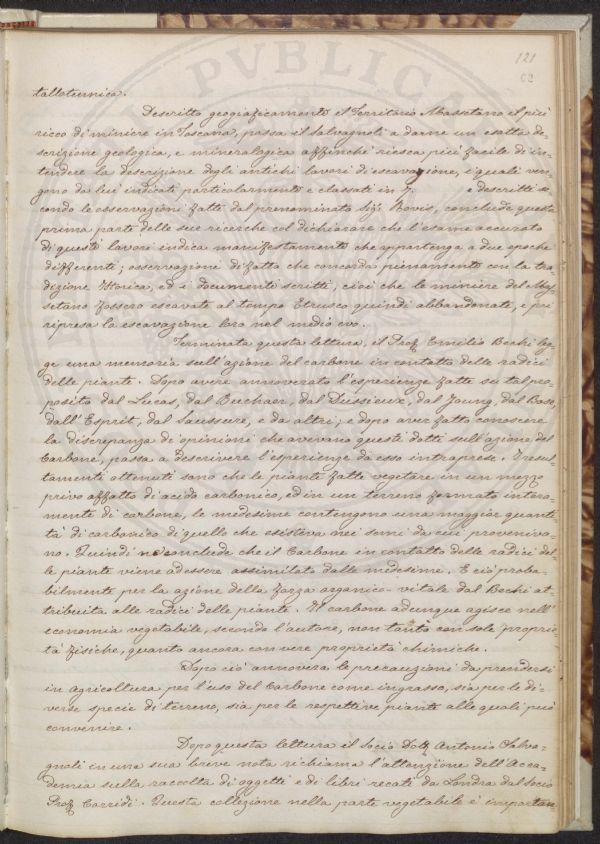 121
62
tallotecnica.
Descritto geograficamente il Territorio Massetano il più
ricco di miniere in Toscana, passa il Salvagnoli a darne un esatta de-
scrizione geologica, e mineralogica affinchè riesca più facile di in-
tendere la descrizione degli antichi lavori di escavazione, i quali ven-
gono da lui indicati particolarmente e classati in 7, e descritti se-
condo le osservazioni fatte dal prenominato Sig. Rovis, conclude questa
prima parte delle sue ricerche col dichiarare che l'esame accurato
di questi lavori indica manifestamente che appartenga a due epoche
differenti; osservazione di fatto che concorda pienamente con la tra-
dizione Storica, ed i documenti scritti, cioè che le miniere del Mas-
setano fossero escavate al tempo Etrusco quindi abbandonate, e poi
ripresa la escavazione loro nel medio evo.
Terminata questa lettura, il Prof. Emilio Bechi leg-
ge una memoria sull'azione del carbone in contatto delle radici
delle piante. Dopo avere annoverato l'esperienze fatte su tal pro-
posito dal Lucas, dal Buchner, dal Dussieux, dal Young, dal
dall'Esprit, dal Saussure, e da altri; e dopo aver fatto conoscere
la discrepanza di opinioni che avevano questi dotti sull'azione del
Carbone, passa a descrivere l'esperienze da esso intraprese. I resul-
tamenti ottenuti sono che le piante fatte vegetare in un mezzo
privo affatto di acido carbonico, ed in un terreno formato intera-
mente di carbone, le medesime contengono una maggior quanti-
tà di carbonico di quello che esisteva nei semi da cui proveniva-
no. Quindi ne conclude che il Carbone in contatto delle radici del-
le piante viene ad essere assimilato dalle medesime. E ciò proba-
bilmente per la azione della forza organico-vitale dal Bechi at-
tribuita alle radici delle piante. Il carbone adunque agisce nell'
economia vegetabile, secondo l'autore, non tanto con sole proprie-
tà fisiche, quanto ancora con vere proprietà chimiche.
Dopo ciò annovera le precauzioni da prendersi
in agricoltura per l'uso del Carbone come ingrasso, sia per le di-
verse specie di terreno, sia per le respettive piante alle quali può
convenire.
Dopo questa lettura il Socio Dott. Antonio Salva-
gnoli in una sua breve nota richiama l'attenzione dell'Acca-
demia sulla raccolta di oggetti e di libri recati da Londra dal Socio
Prof. Corridi. Questa collezione nella parte vegetabile è importan